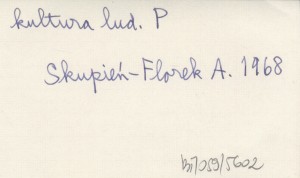 kultura lud. P
Skupień-Florek A. 1968
bi/059/5602